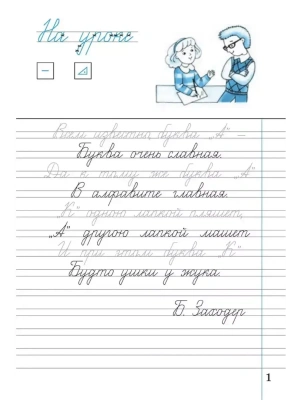 На уроке
Всем известна буква „А" –
Буква очень славная.
Да к тому же буква „А"
В алфавите главная.
„К" одною лапкой пляшет,
„А" другою лапкой машет
И при этом буква „К"
Будто ушки у жука.
Б. Заходер
1